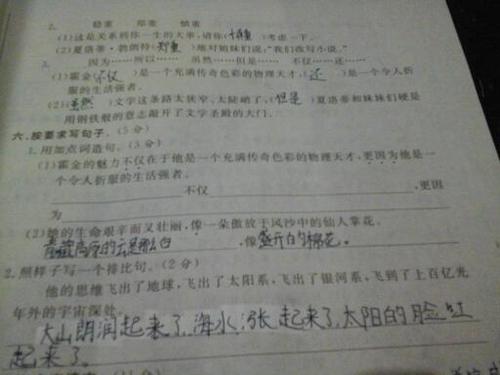 2. 稳重 郑重 慎重
(1)这是关系到你一生的大事,请你(慎重)考虑一下。
(2)夏洛蒂·勃朗特(郑重)地对姐妹们说:“我们改写小说。”
3. 因为……所以…… 虽然……但是…… 不仅……还……
(1)霍金(不仅)是一个充满传奇色彩的物理天才,(还)是一个令人折
服的生活强者。
(2)(虽然)文学这条路太狭窄、太陡峭了,(但是)夏洛蒂和妹妹们硬是
用钢铁般的意志敲开了文学圣殿的大门。
六、按要求写句子。(5分)
1. 用加点词造句。(3分)
(1)霍金的魅力不仅在于他是一个充满传奇色彩的物理天才,更因为他是一
个令人折服的生活强者。
不仅 ,更因
为
(2)她的生命艰辛而又壮丽,像一朵傲放于风沙中的仙人掌花。
青藏高原的云是那么白 ,像盛开的棉花。
2. 照样子写一个排比句。(2分)
他的思维飞出了地球,飞出了太阳系,飞出了银河系,飞到了上百亿光
年外的宇宙深处。
大山朗润起来了,海水涨起来了,太阳的脸红
起来了。